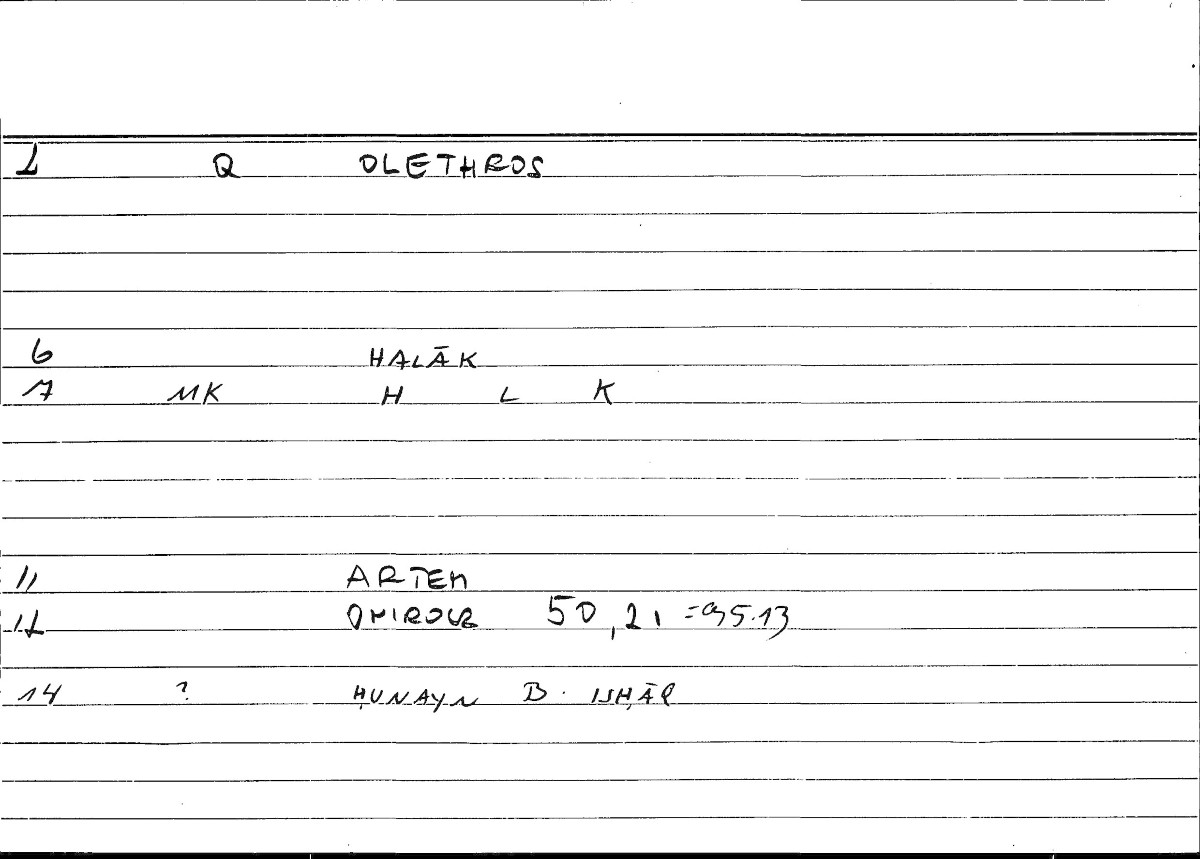 1 Q OLETHROS
6 HALĀK
7 MK H L K
11 ARTEM
12 ONIROCR 50,21 = 95.13
14 ? ḤUNAYN B. ISḤĀQ